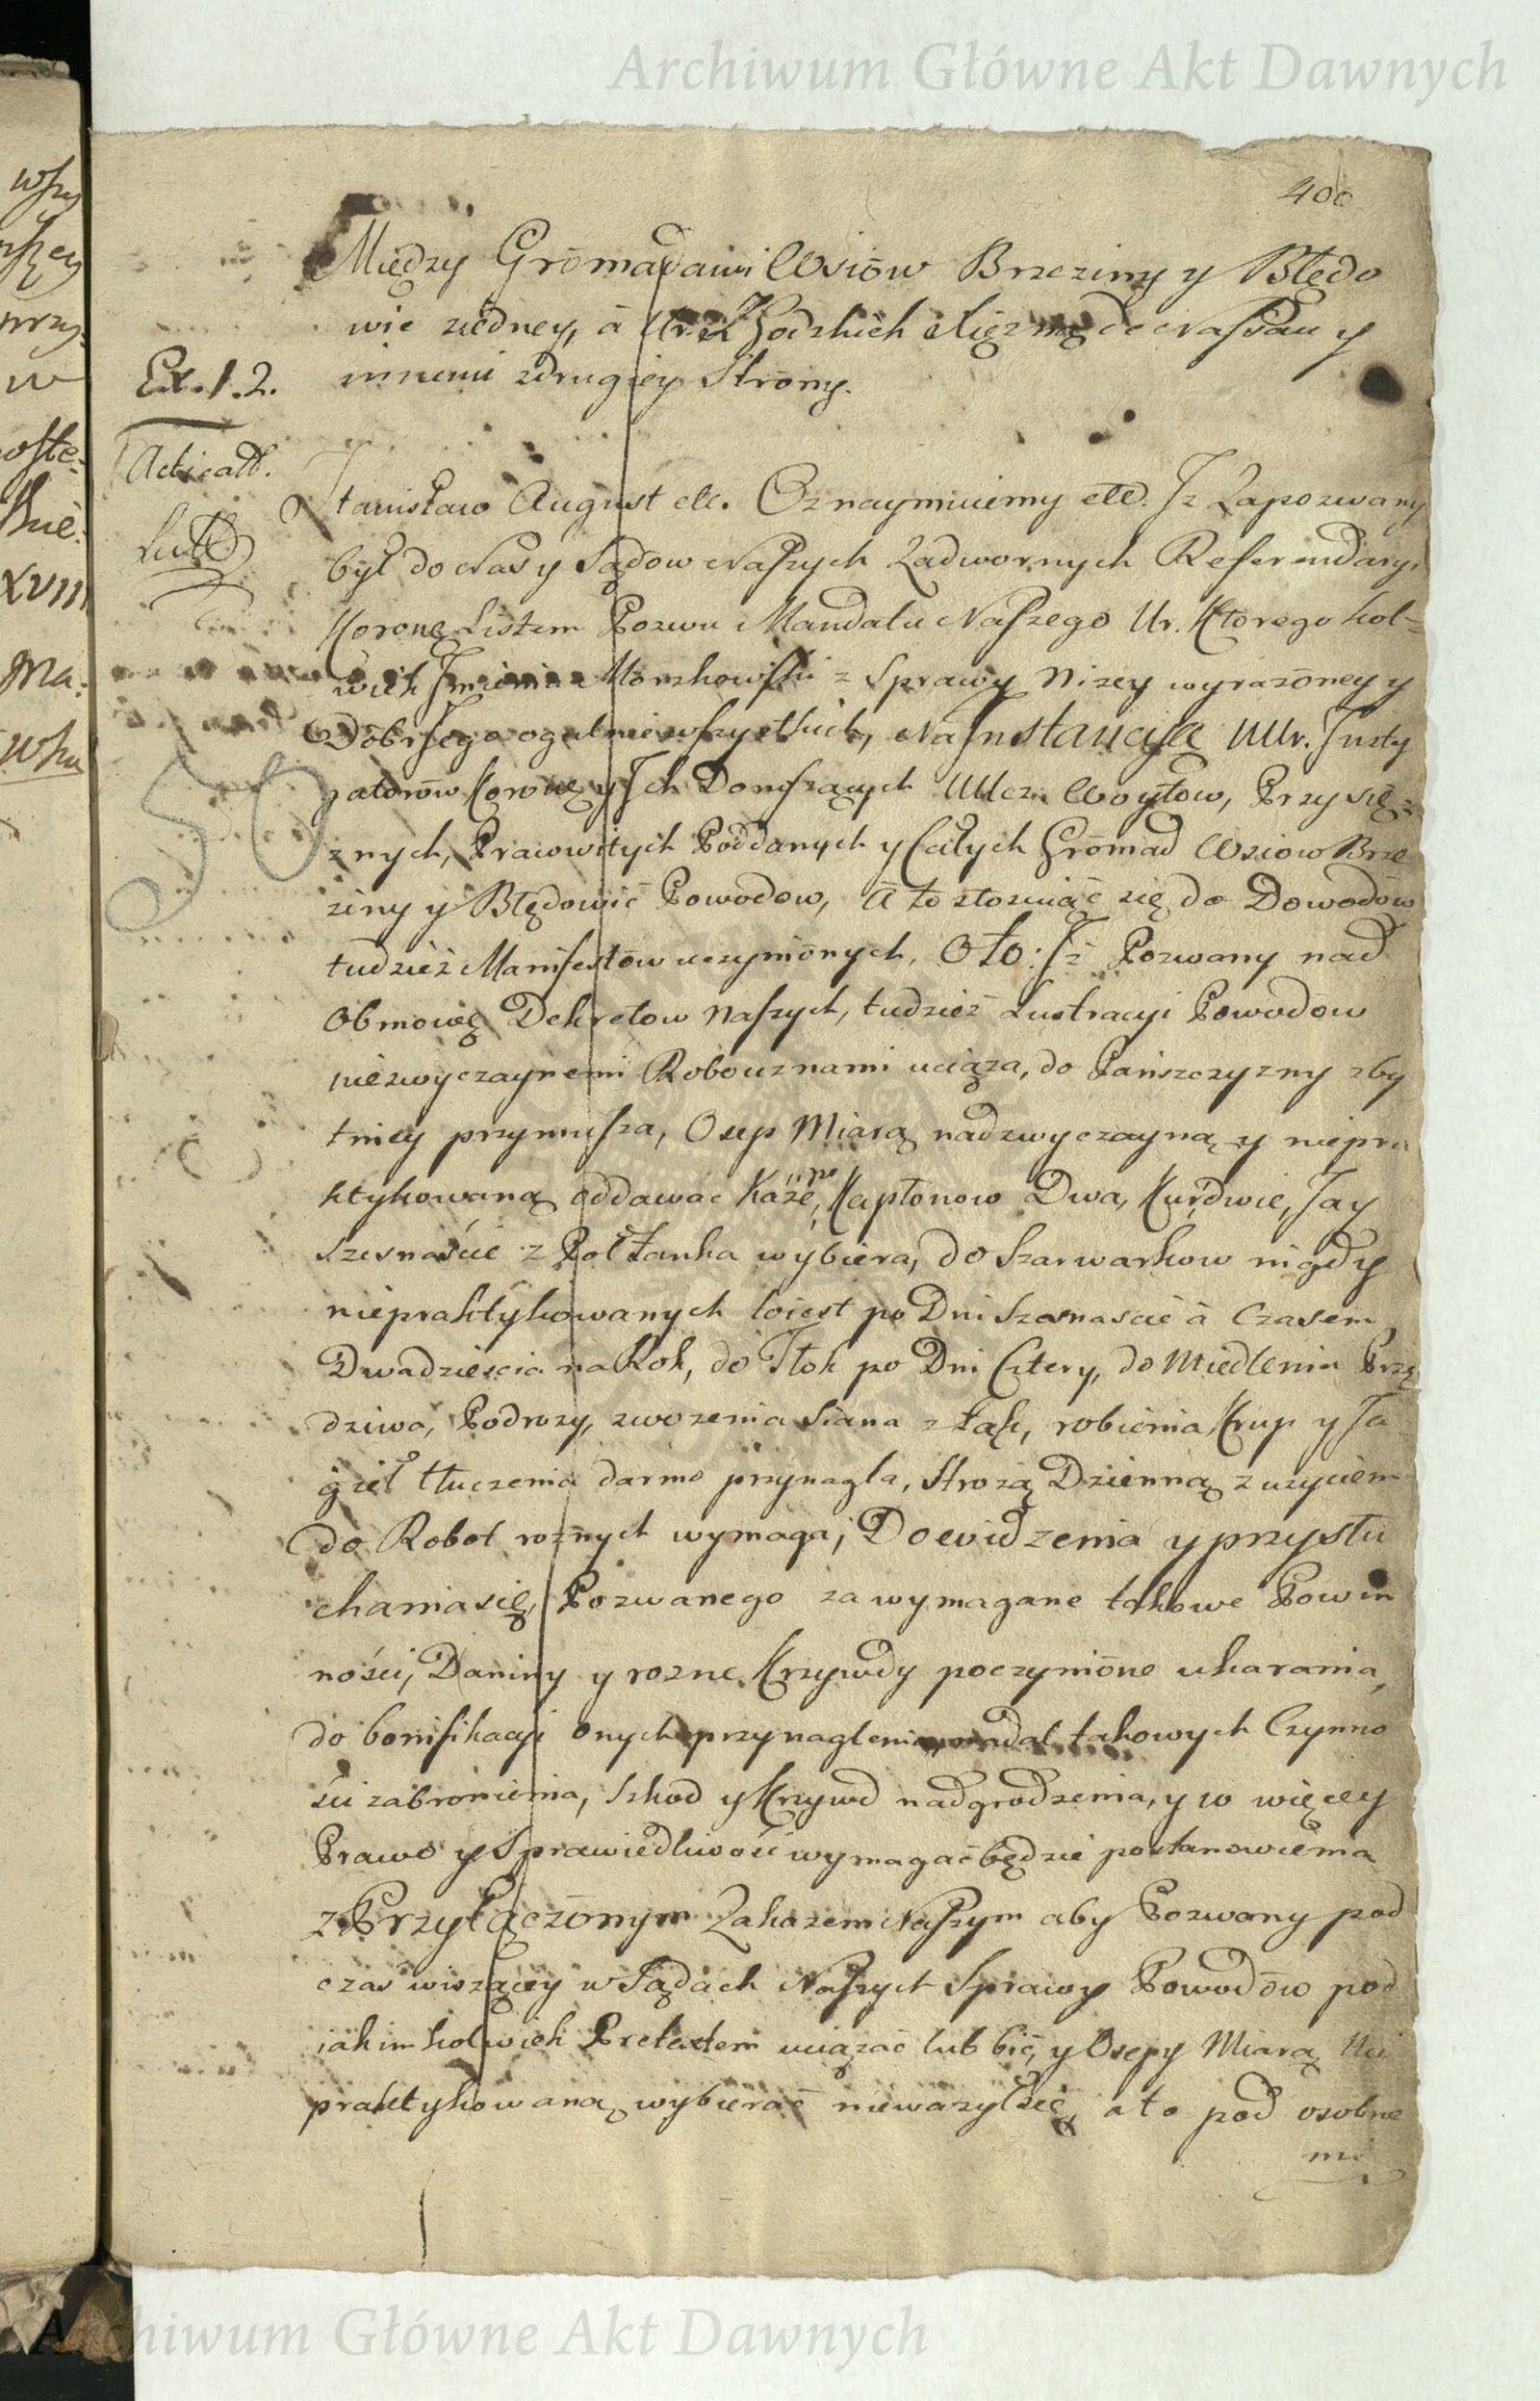 Archiwum Główne Akt Dawnych
400
Między Gromadami Wsiów Brzeziny y Błędo
wie ziedney, á Ur. Zodzkich Xięzną de Nassau y
innemi zdrugiey Strony.
Ex. 1. 2.
Acticatt.
Stanisław August etc. Oznaymuiemy etc. Jż Zapozwany
był do Nas y Sądow Naszych Zadwornych Referendary
Koroną Listem Pozwu Mandatu Naszego Ur. Ktorego kol=
wiek Jmienia Morzkowski z Sprawy Niżey wyrażoney y
Dobr Jego ogulnie wszystkich, Na Jnstancyią UUr. Jnsty
gatorów Koroną y Jch Donoszących Uucz. Woytow, Przysię=
znych, Pracowitych Poddanych y Całych Gromad Wsiow Brze
ziny y Błędowić Powodow, A to stosuiąc się do Dowodow
tudzież Manifestow uczynionych, Oto: Jż Pozwany nad
Obmowę Dekretow Naszych, tudzież Lustracyi Powodow
niezwyczaynemi Robociznami uciąża, do Pańszczyzny zby
tniey przymusza, Osep Miarą nadzwyczayną y niepra
ktykowaną oddawać Każe, po Kapłonow Dwa, Kur dwie, Jay
szesnaście z Poł Łanka wybiera, do Szarwarkow nigdy
niepraktykowanych toiest po Dni Szesnascie á Czasem
Dwadziescia na Rok, do Tłok po Dni Cztery, do Miedlenia Przę
dziwa, Podrozy, zwozenia Siana z Łąk, robienia Krup y Ja
gieł tłuczenia darmo przynagla, Strożą Dzienną z uzyciem
do Robot roznych wymaga; Do widzenia y przysłu
chania się, Pozwanego za wymagane takowe Powin
ności, Daniny y rozne Krzywdy poczynione ukarania,
do bonifikacyi onych przynaglenia, nadal takowych Czynno
ści zabronienia, Szkod y Krzywd nadgrodzenia, y co więcey
Prawo y Sprawiedliwość wymagać będzie postanowienia
z Przyłączonym Zakazem Naszym aby Pozwany pod
czas wiszącey w Sądach Naszych Sprawy Powodow pod
iakimkolwiek Pretextem uciążać lub bić, y Osepy Miarą Nie
praktykowaną wybierać nieważył się, a to pod osobne
mi
50
Archiwum Główne Akt Dawnych